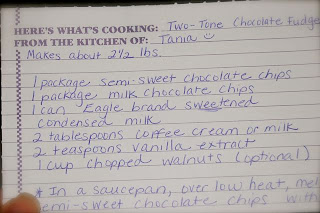 HERE'S WHAT'S COOKING: Two-Tone Chocolate Fudge
FROM THE KITCHEN OF: Tania
Makes about 2 1/2 lbs.
1 package semi-sweet chocolate chips
1 package milk chocolate chips
1 can Eagle brand sweetened
condensed milk
2 tablespoons coffee cream or milk
2 teaspoons vanilla extract
1 cup chopped walnuts (optional)
* In a saucepan, over low heat, mel
semi-sweet chocolate chips with